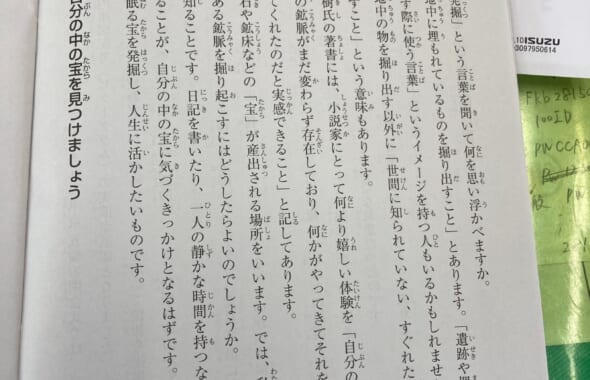 発掘」という言葉を聞いて何を思い浮かべますか。
地中に埋もれているものを掘り出すこと」とあります。「遺跡や
す際に使う言葉」というイメージを持つ人もいるかもしれませ
地中の物を掘り出す以外に「世間に知られていない、すぐれた
すこと」という意味もあります。
樹氏の著書には、小説家にとって何より嬉しい体験を「自分の
の鉱脈がまだ変わらず存在しており、何かがやってきてそれを
てくれたのだと実感できること」と記してあります。
石や鉱床などの「宝」が産出される場所をいいます。では、
ある鉱脈を掘り起こすにはどうしたらよいのでしょうか。
知ることです。日記を書いたり、一人の静かな時間を持つな
ることが、自分の中の宝に気づくきっかけとなるはずです。
眠る宝を発掘し、人生に活かしたいものです。
自分の中の宝を見つけましょう
ISUZU
0097950614
100ID